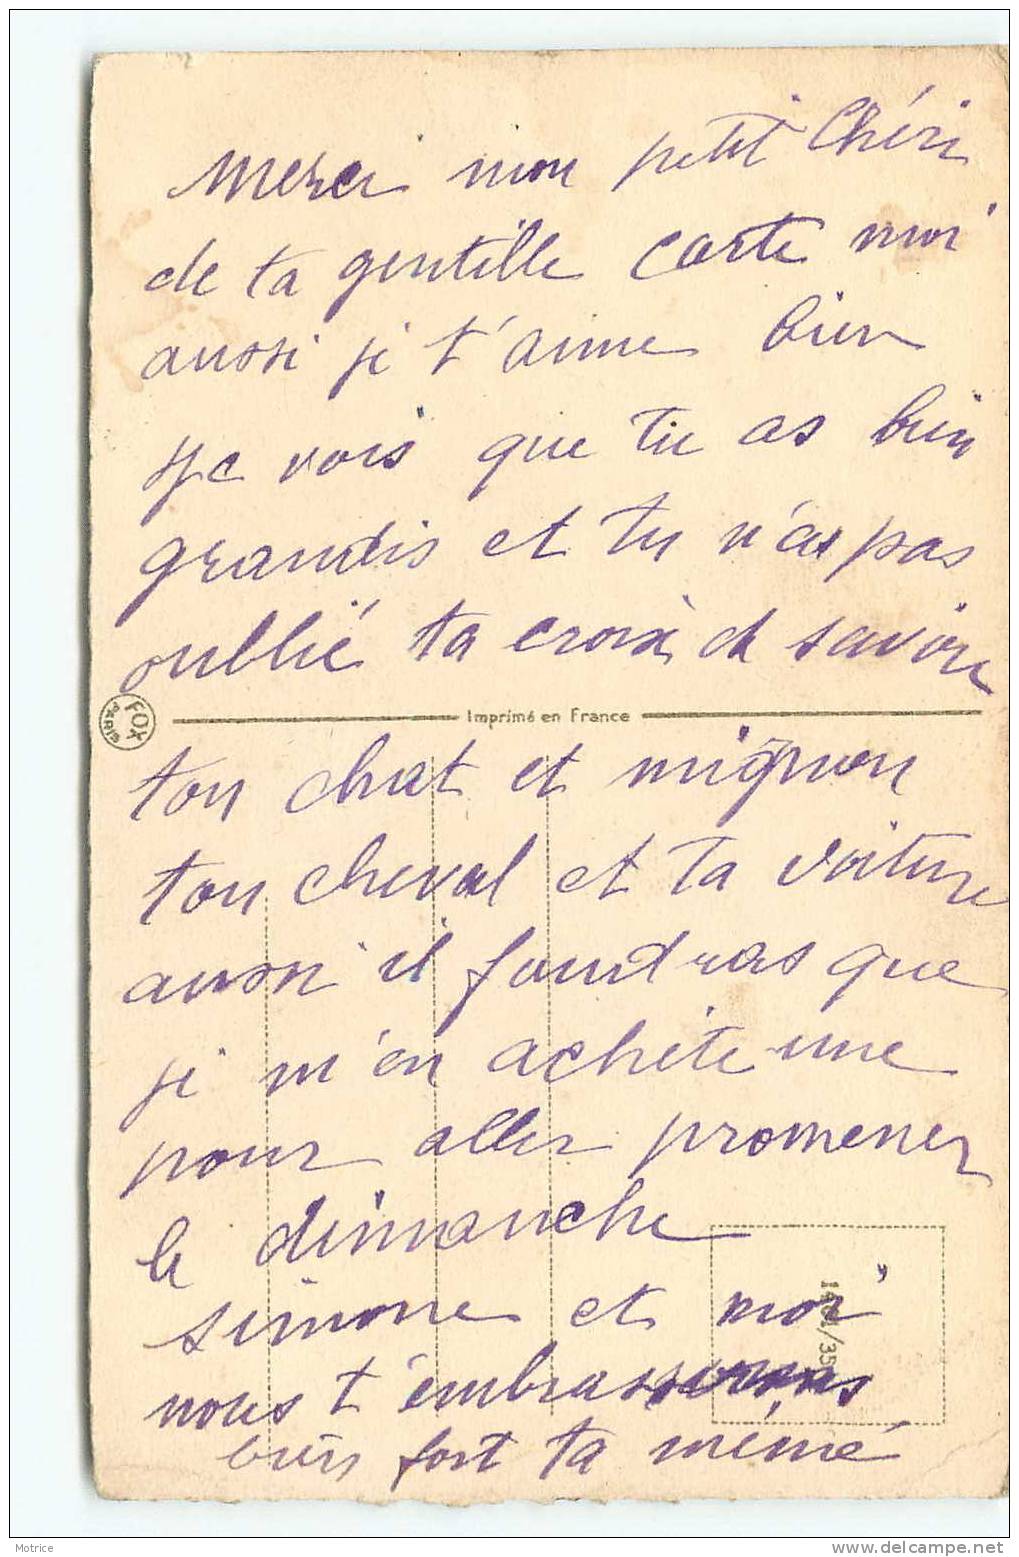 Merci mon petit Chéri
de ta gentille carte moi
aussi je t'aime bien
je vois que tu as bien
grandis et tu n'as pas
oublié ta croix de savoir
FOX
PARIS
Imprimé en France
ton chat et mignon
ton cheval et ta voiture
aussi il faudras que
je m'en achète une
pour aller promener
le dimanche
simone et moi
nous t'embrassons
bien fort ta mémé
Motrice
www.delcampe.net